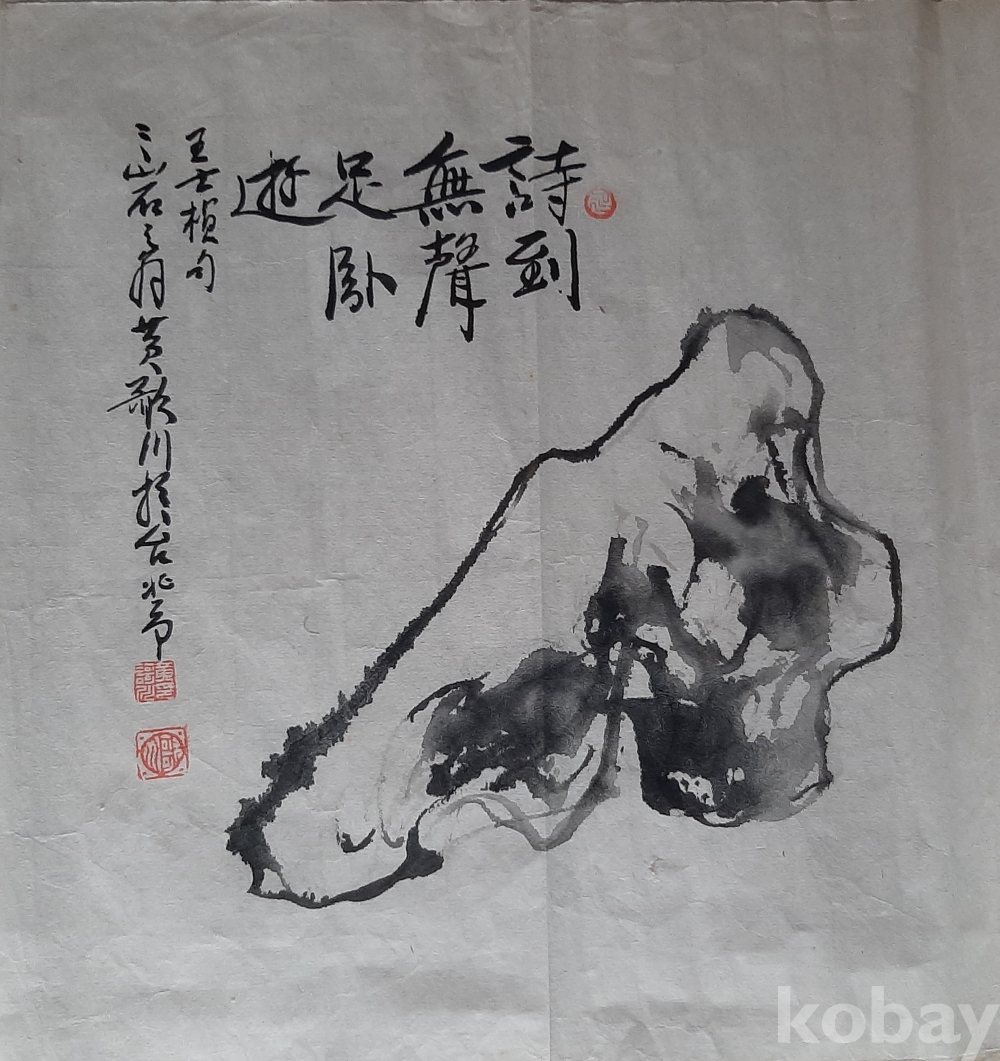 詩到
無聲
足臥
遊
王士楨句
三山石之翁黃歌川於台北市
kobay